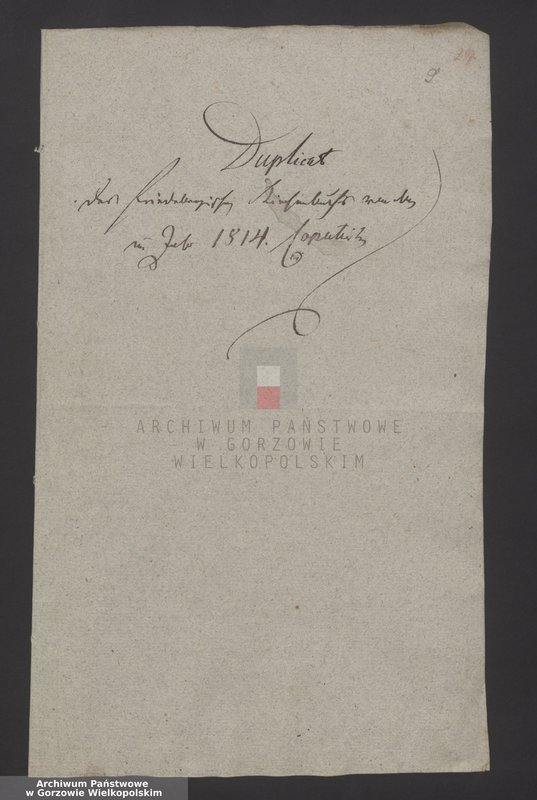 29
9
Duplicat
des Friedebergischen Kirchenbuchs von den
im Jahr 1814. Copulirten
ARCHIWUM PAŃSTWOWE
W GORZOWIE
WIELKOPOLSKIM
Archiwum Państwowe
w Gorzowie Wielkopolskim